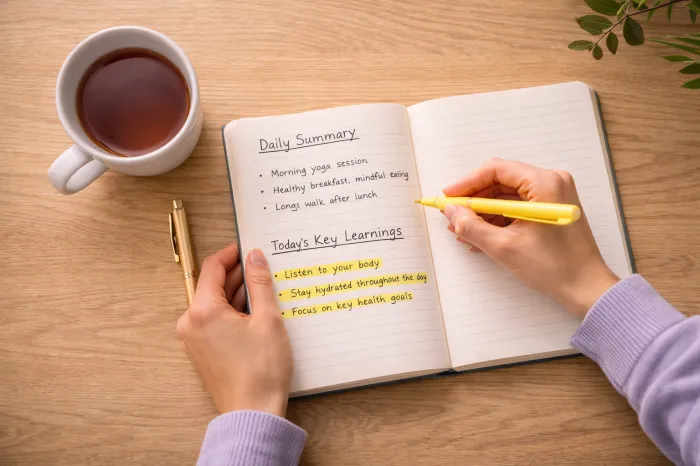 Daily Summary
• Morning yoga session
• Healthy breakfast, mindful eating
• Longs walk after lunch
Today's Key Learnings
• Listen to your body
• Stay hydrated throughout the day
• Focus on key health goals